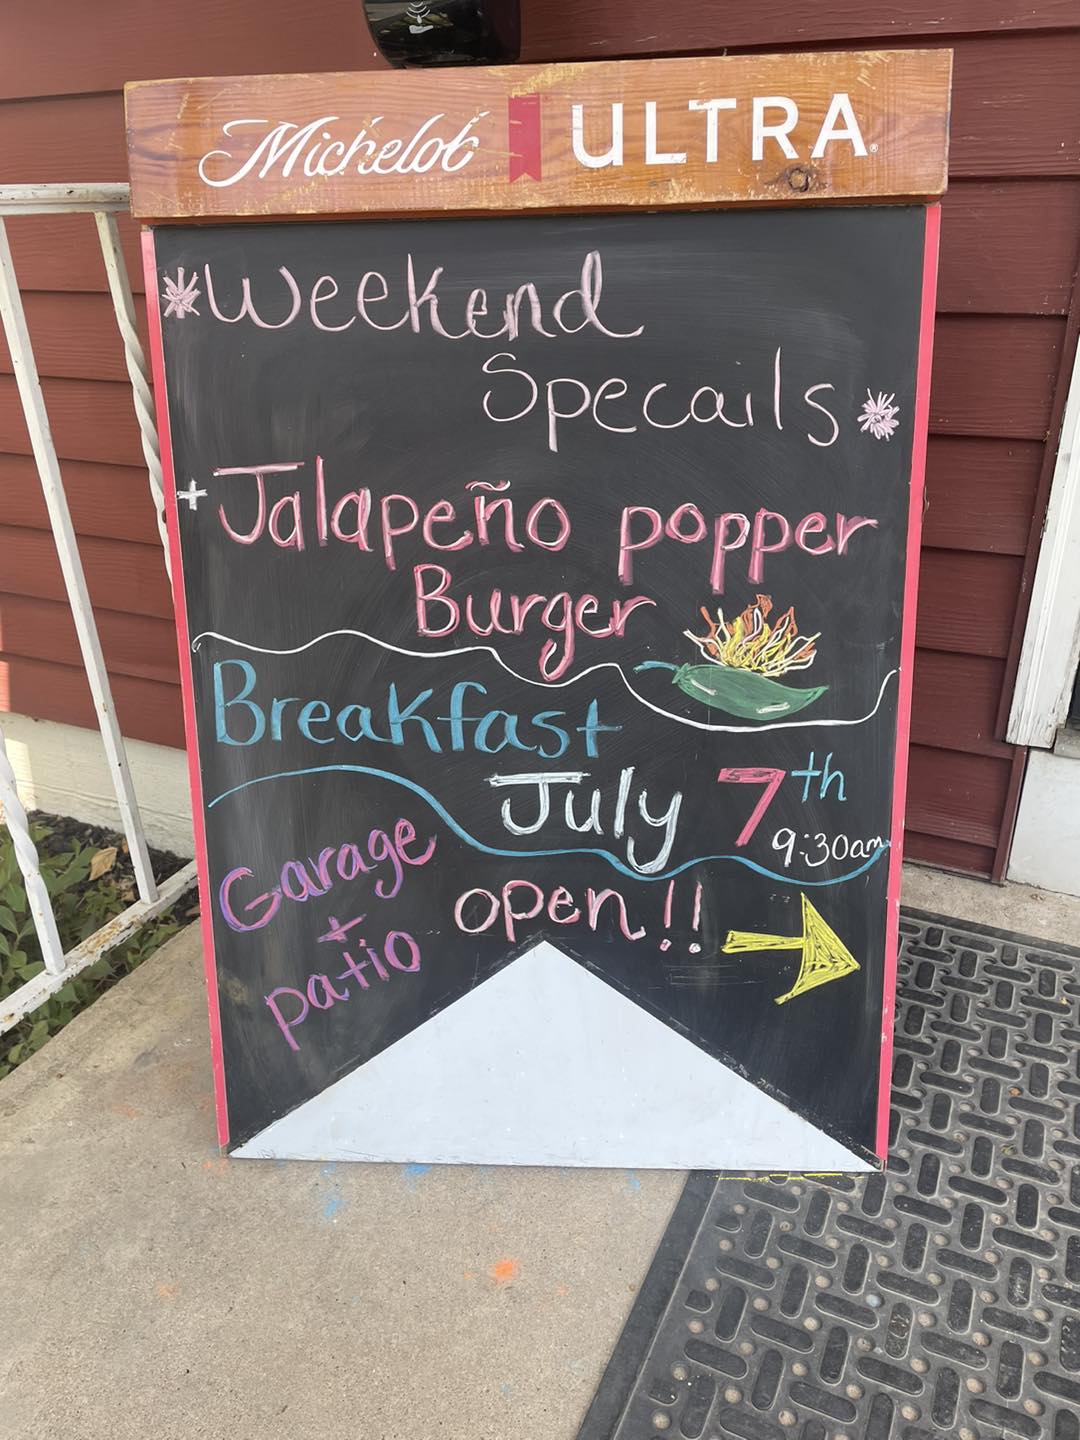 Michelob ULTRA®
*Weekend
Specails*
+Jalapeño popper
Burger
Breakfast
July 7th
9:30am
Garage
+
patio
open!!